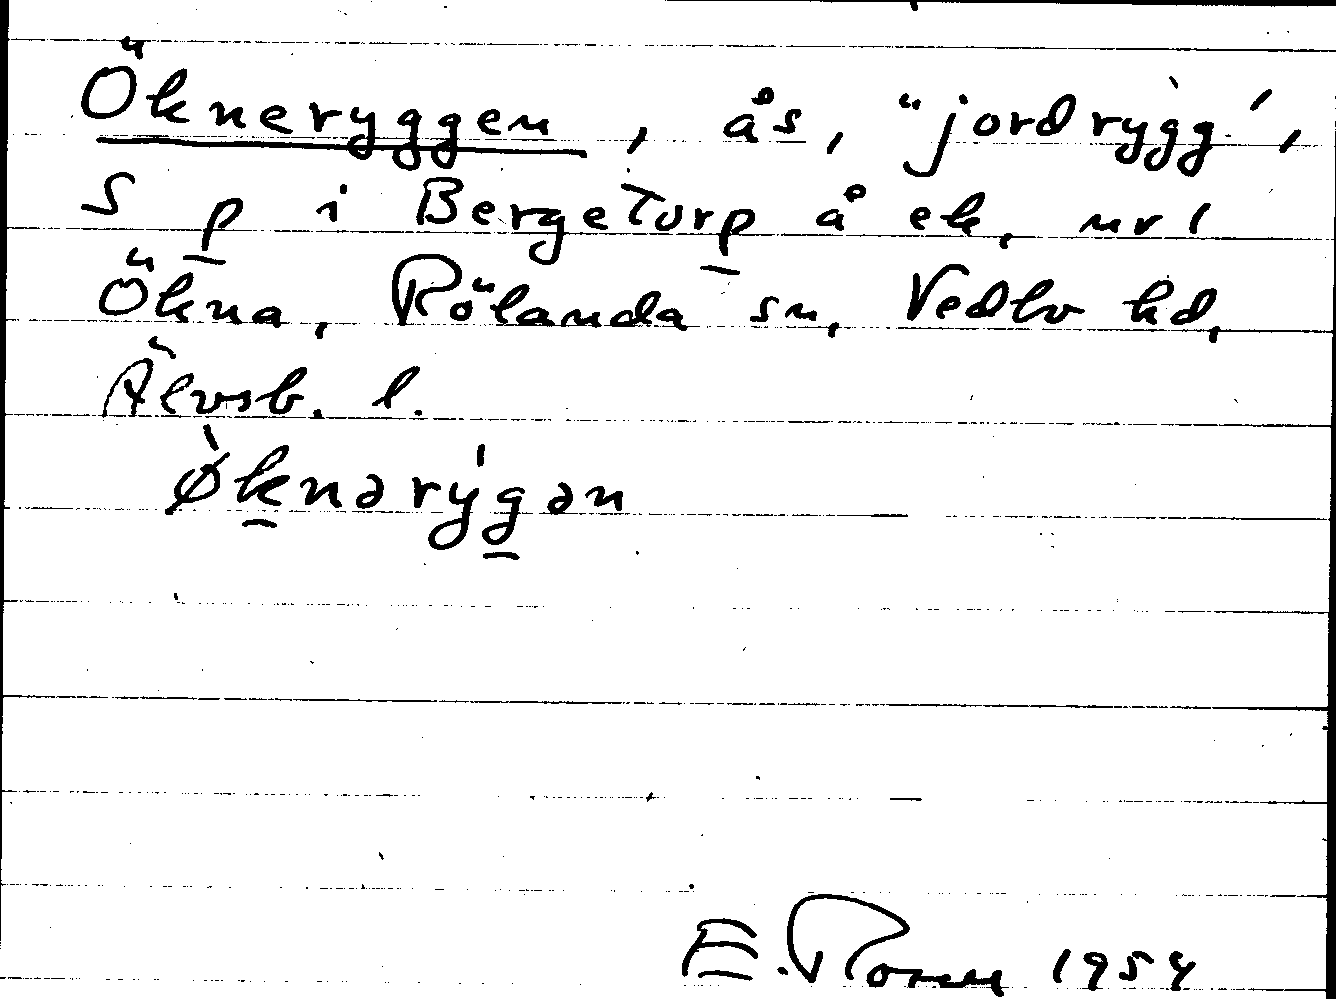 Ökneryggen, ås, "jordrygg",
S p i Bergetorp å ek, nr 1
Ökna, Rölanda sn, Vedbo hd,
Älvsb. l.
Ø̀knəry̍gən
E. 1954